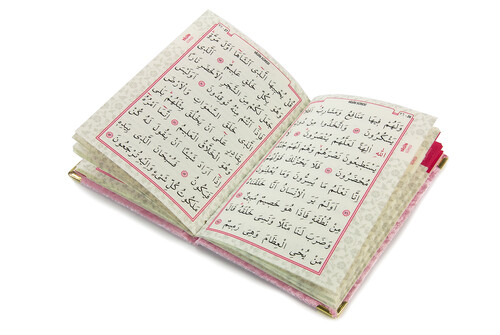 وَلَهُمْ فِيهَا مَنَافِعُ وَمَشَارِبُ اَفَلَا
يَشْكُرُونَ وَاتَّخَذُوا مِنْ دُونِ
اللّٰهِ اٰلِهَةً لَعَلَّهُمْ يُنْصَرُونَ لَا
يَسْتَطِيعُونَ نَصْرَهُمْ وَهُمْ لَهُمْ جُنْدٌ
مُحْضَرُونَ فَلَا يَحْزُنْكَ قَوْلُهُمْ
اِنَّا نَعْلَمُ مَا يُسِرُّونَ وَمَا يُعْلِنُونَ
اَوَلَمْ يَرَ الْاِنْسَانُ اَنَّا خَلَقْنَاهُ
مِنْ نُطْفَةٍ فَاِذَا هُوَ خَصِيمٌ مُبِينٌ
وَضَرَبَ لَنَا مَثَلًا وَنَسِيَ خَلْقَهُ قَالَ
مَنْ يُحْيِ الْعِظَامَ وَهِيَ رَمِيمٌ
قُلْ يُحْيِيهَا الَّذِي اَنْشَاَهَا اَوَّلَ مَرَّةٍ
وَهُوَ بِكُلِّ خَلْقٍ عَلِيمٌ اَلَّذِي
جَعَلَ لَكُمْ مِنَ الشَّجَرِ الْاَخْضَرِ نَارًا
فَاِذَا اَنْتُمْ مِنْهُ تُوقِدُونَ اَوَلَيْسَ
الَّذِي خَلَقَ السَّمٰوَاتِ وَالْاَرْضَ
بِقَادِرٍ عَلٰى اَنْ يَخْلُقَ مِثْلَهُمْ بَلٰى
وَهُوَ الْخَلَّاقُ الْعَلِيمُ اِنَّمَا اَمْرُهُ
اِذَا اَرَادَ شَيْئًا اَنْ يَقُولَ لَهُ كُنْ
فَيَكُونُ فَسُبْحَانَ الَّذِي بِيَدِهِ
مَلَكُوتُ كُلِّ شَيْءٍ وَاِلَيْهِ تُرْجَعُونَ